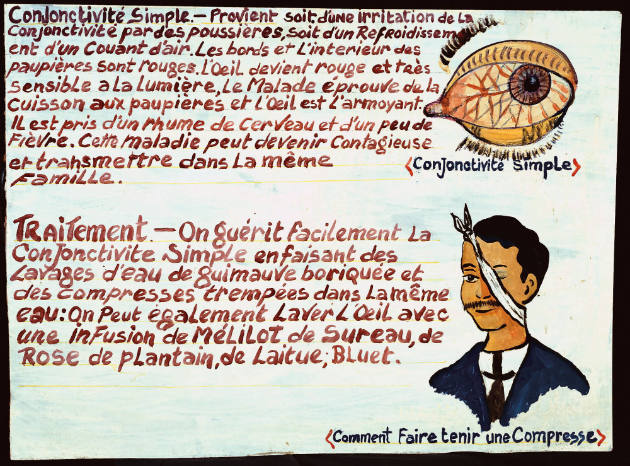 Conjonctivité Simple.- Provient soit d'une irritation de la
Conjonctivité par des poussières, soit d'un Refroidissem
ent d'un Couant d'air. Les bords et L'interieur des
paupières sont rouges. L'Œil devient rouge et très
sensible a la lumière, Le Malade éprouve de la
Cuisson aux paupières et l'Œil est L'armoyant.
Il est pris d'un rhume de Cerveau et d'un peu de
Fièvre. Cette maladie peut devenir Contagieuse
et transmettre dans La même
Famille.
(Conjonctivité Simple)
Traitement.- On guérit facilement La
Conjonctivite Simple en faisant des
Lavages d'eau de guimauve boriquée et
des compresses trempées dans La même
eau: On Peut également Laver L'Œil avec
une infusion de Mélilot de Sureau, de
Rose de plantain, de Laitue, Bluet.
(Comment Faire tenir une Compresse)